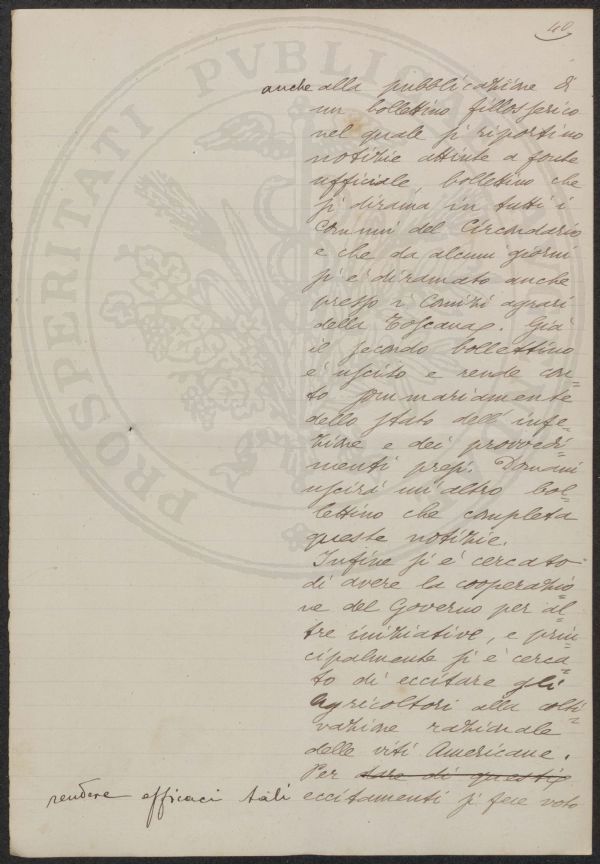 40
anche alla pubblicazione di
un bollettino fillosserico
nel quale si riportino
notizie attinte a fonte
ufficiale, bollettino che
si dirama in tutti i
Comuni del Circondario
e che da alcuni giorni
si è diramato anche
presso i Comizi agrari
della Toscana. Già
il secondo bollettino
è uscito e rende con=
to sommariamente
dello stato dell'infe=
zione e dei provvedi=
menti presi. Domani
uscirà un'altro bol=
lettino che completa
queste notizie.
Infine si è cercato
di avere la cooperazio=
ne del Governo per al=
tre iniziative, e prin=
cipalmente si è cerca=
to di eccitare gli
agricoltori alla colti=
vazione razionale
delle viti Americane.
Per
rendere efficaci tali eccitamenti si fece voto
PROSPERITATI PVBLICAE